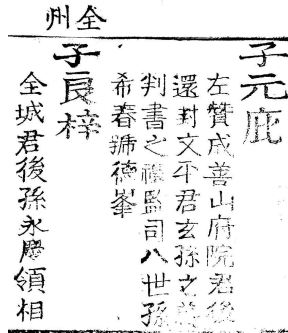 全州
子元庇
左贊成善山府院君後
還封文平君玄孫之
判書之監司八世孫
希春號德峯
子良梓
全城君後孫永慶領相